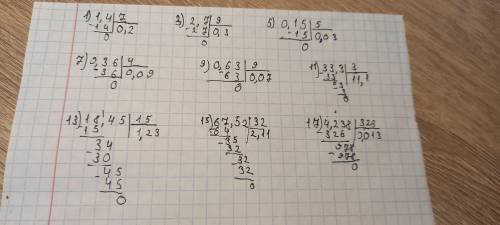 1) 1,4 7 3) 2,7 9 5) 0,15 5
-14 0,2 -27 0,3 -15 0,03
0 0 0
7) 0,36 4 9) 0,63 9 11) 33,3 3
-36 0,09 -63 0,07 33 11,1
0 0 3
3
0
13) 18,45 15 15) 67,52 32 17) 4,238 326
15 1,23 64 2,11 -326 0,013
34 -35 978
-30 32 -978
-45 -32 0
45 32
0 0